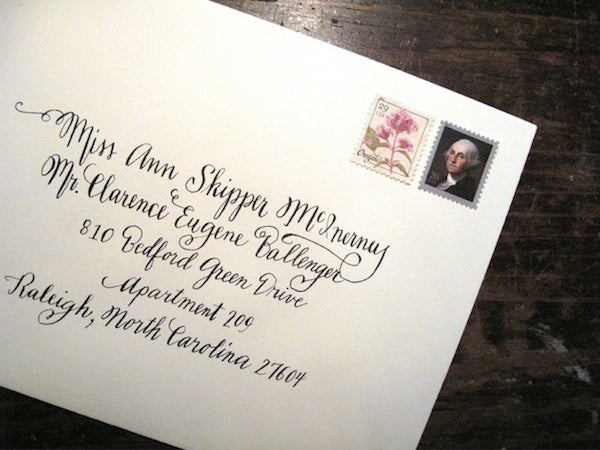 Miss Ann Skipper McInerney
&
Mr. Clarence Eugene Ballenger
810 Bedford Green Drive
Apartment 209
Raleigh, North Carolina 27604
29
USA
20